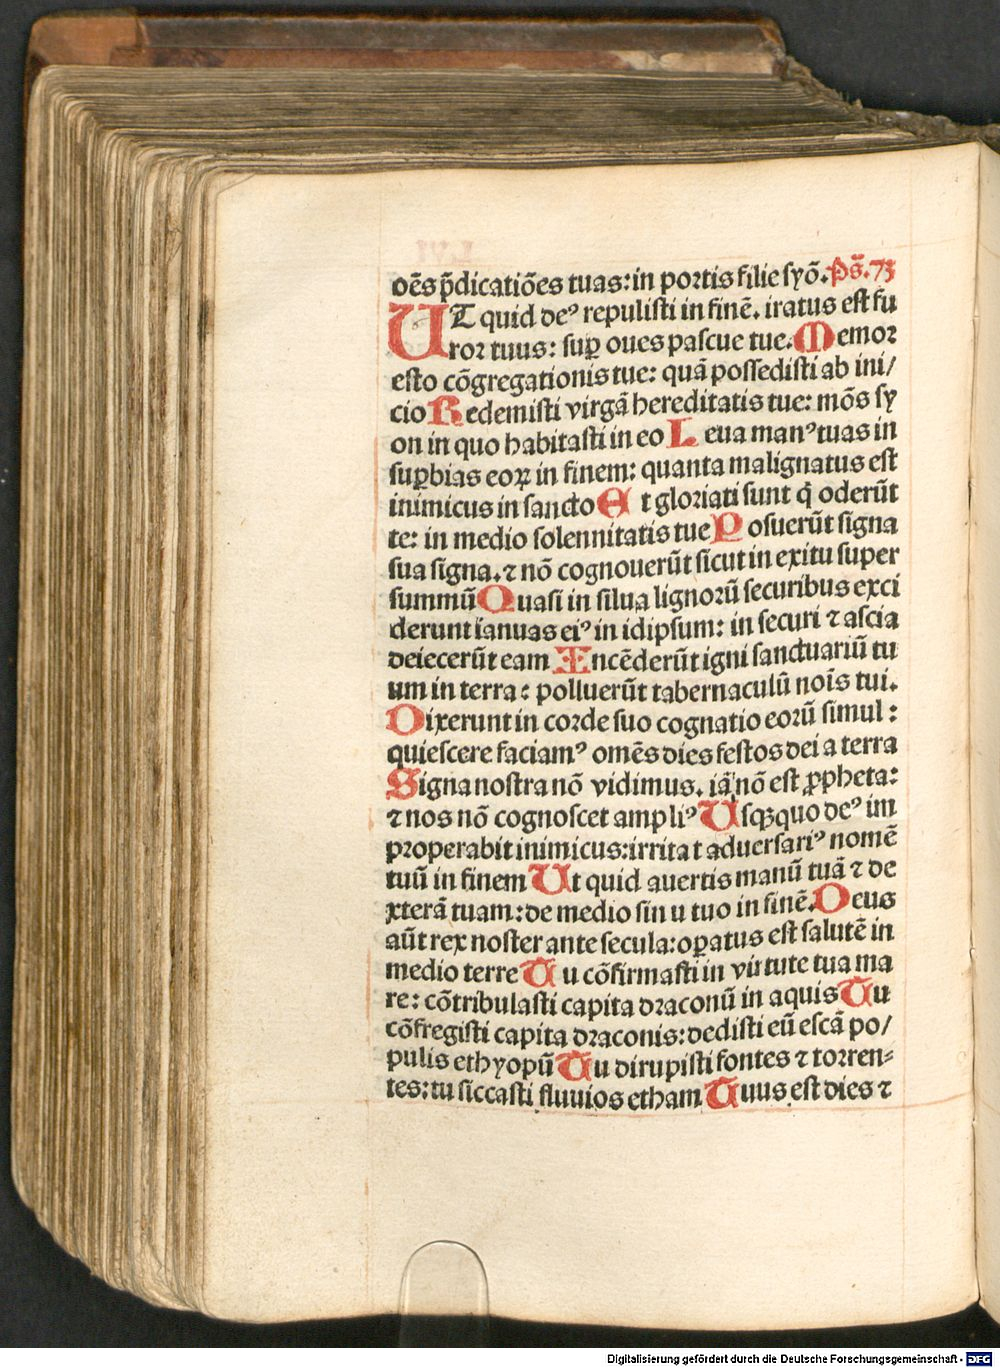 oẽs p̃dicatiões tuas: in portis filie syõ. Ps̃. 73
UT quid deꝰ repulisti in finẽ. iratus est fu
ror tuus: suꝑ oues pascue tue. Memor
esto cõgregationis tue: quã possedisti ab ini/
cio Redemisti virgã hereditatis tue: mõs sy
on in quo habitasti in eo Leua manꝰ tuas in
suꝑbias eoꝝ in finem: quanta malignatus est
inimicus in sancto Et gloriati sunt q̃ oderũt
te: in medio solennitatis tue Posuerũt signa
sua signa. ⁊ nõ cognouerũt sicut in exitu super
summũ Quasi in silua lignorũ securibus exci
derunt ianuas eiꝰ in idipsum: in securi ⁊ ascia
deiecerũt eam Incẽderũt igni sanctuariũ tu
um in terra: polluerũt tabernaculũ noĩs tui.
Dixerunt in corde suo cognatio eorũ simul:
quiescere faciamꝰ omẽs dies festos dei a terra
Signa nostra nõ vidimus. iã nõ est ꝓpheta:
⁊ nos nõ cognoscet ampliꝰ Usqꝫquo deꝰ im
properabit inimicus: irritat aduersariꝰ nomẽ
tuũ in finem Ut quid auertis manũ tuã ⁊ de
xterã tuam: de medio sinu tuo in finẽ. Deus
aũt rex noster ante secula: oꝑatus est salutẽ in
medio terre Tu cõfirmasti in virtute tua ma
re: cõtribulasti capita draconũ in aquis Tu
cõfregisti capita draconis: dedisti eũ escã po/
pulis ethyopũ Tu dirupisti fontes ⁊ torren⸗
tes: tu siccasti fluuios etham Tuus est dies ⁊
Digitalisierung gefördert durch die Deutsche Forschungsgemeinschaft - DFG